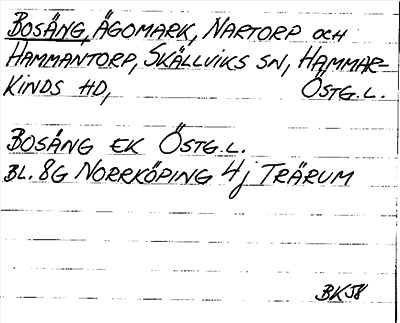 BOSÄNG, ÄGOMARK, NARTORP OCH
HAMMANTORP, SKÄLLVIKS SN, HAMMAR-
KINDS HD, ÖSTG.L.
BOSÄNG EK ÖSTG.L.
BL. 8G NORRKÖPING 4j TRÄRUM
BK58